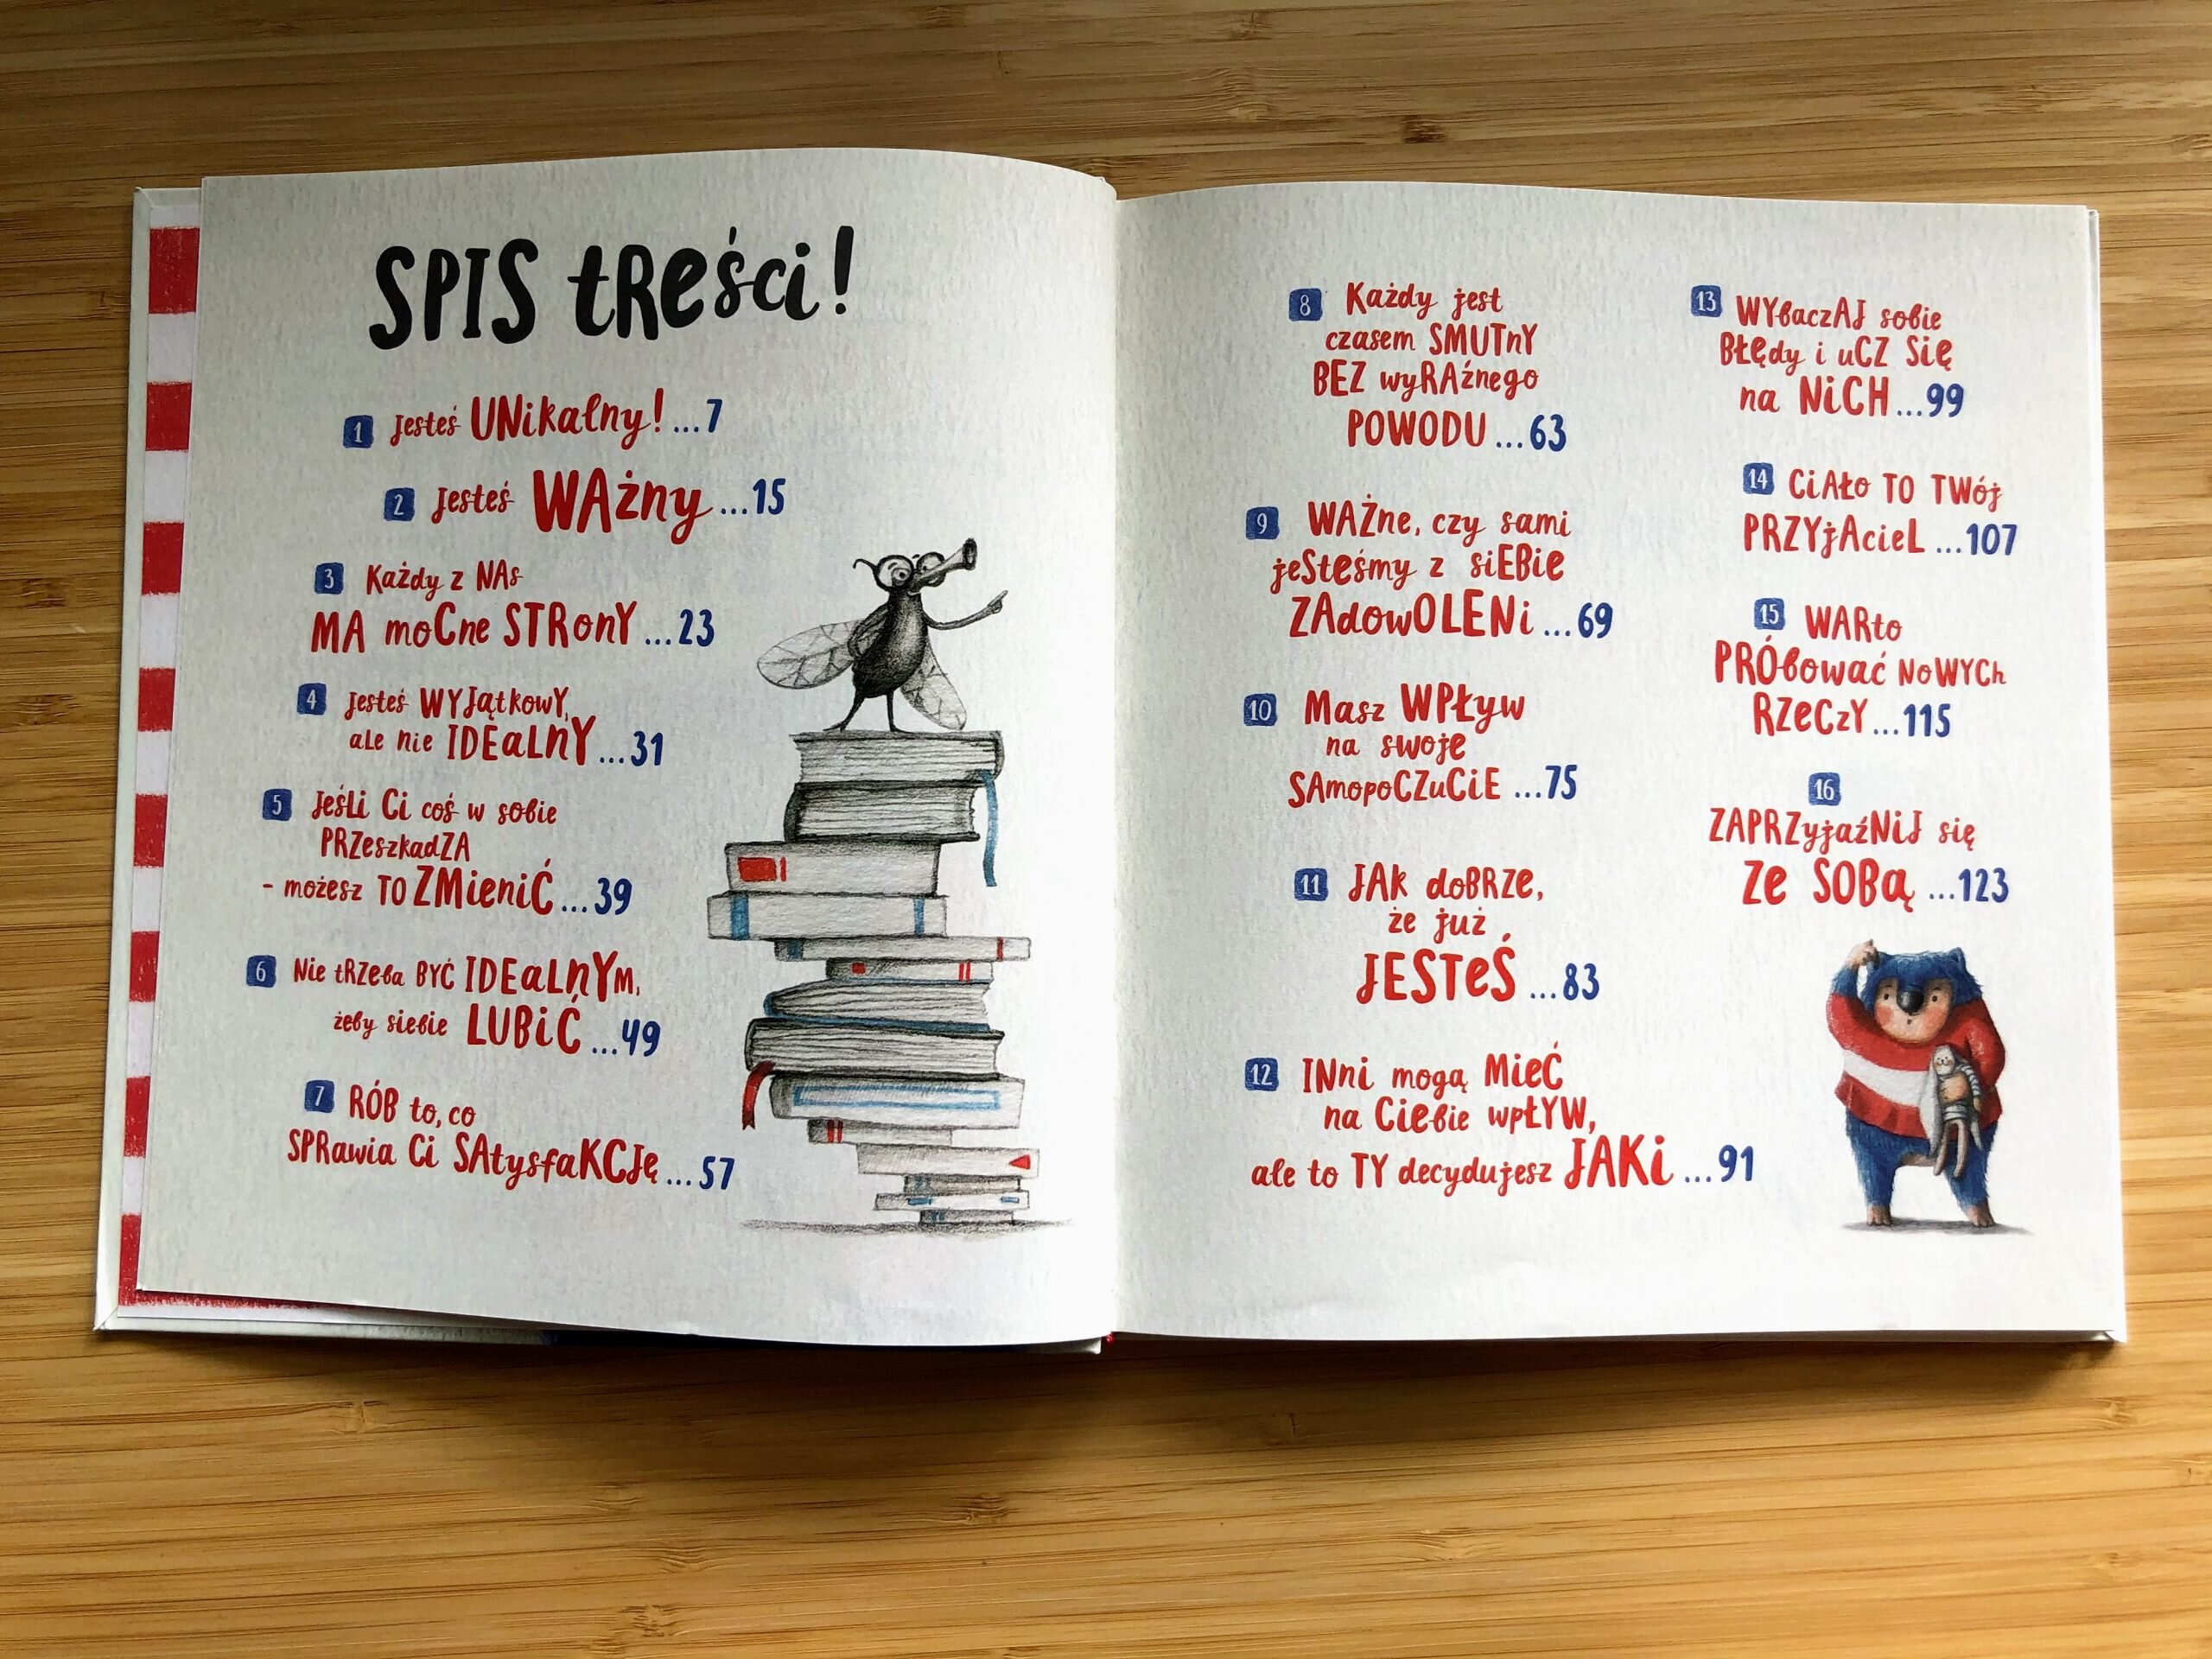 SPIS tReści!
1 Jesteś UNikalny! ...7
2 Jesteś WAżny ...15
3 Każdy z NAs
MA moCne STRonY ...23
4 Jesteś WYJątkowY,
aLe nie IDEaLnY ...31
5 JeśLi Ci coś w sobie
PRZeszkadZA
- możesz TO ZMieniĆ ...39
6 Nie tRZeba BYĆ IDEaLnYm,
żeby siebie LUBiĆ ...49
7 RÓB to, co
SPRawia Ci SAtysfaKCJę ...57
8 Każdy jest
czasem SMUTnY
BEZ wyRAźnego
POWODU ...63
9 WAŻne, czy sami
jeSteśmy z siEBie
ZAdowOLENi ...69
10 Masz WPŁyw
na swoje
SAmopoCZuCiE ...75
11 JAk doBRZe,
że już
JESTeŚ ...83
12 INni mogą MieĆ
na Ciebie wpŁYW,
ale to TY decydujesz JAKi ...91
13 WYbaczAJ sobie
BŁĘdy i uCZ Się
na NiCH ...99
14 CiAło TO TWój
PRZYjAcieL ...107
15 WARto
PRÓbować NoWYCh
RZeCzY ...115
16
ZAPRZyjaźNiJ się
Ze SOBą ...123